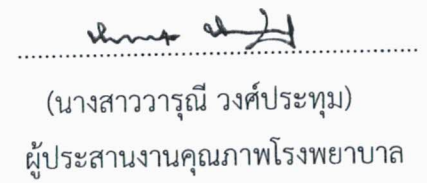 (นางสาววารุณี วงศ์ประทุม)
ผู้ประสานงานคุณภาพโรงพยาบาล